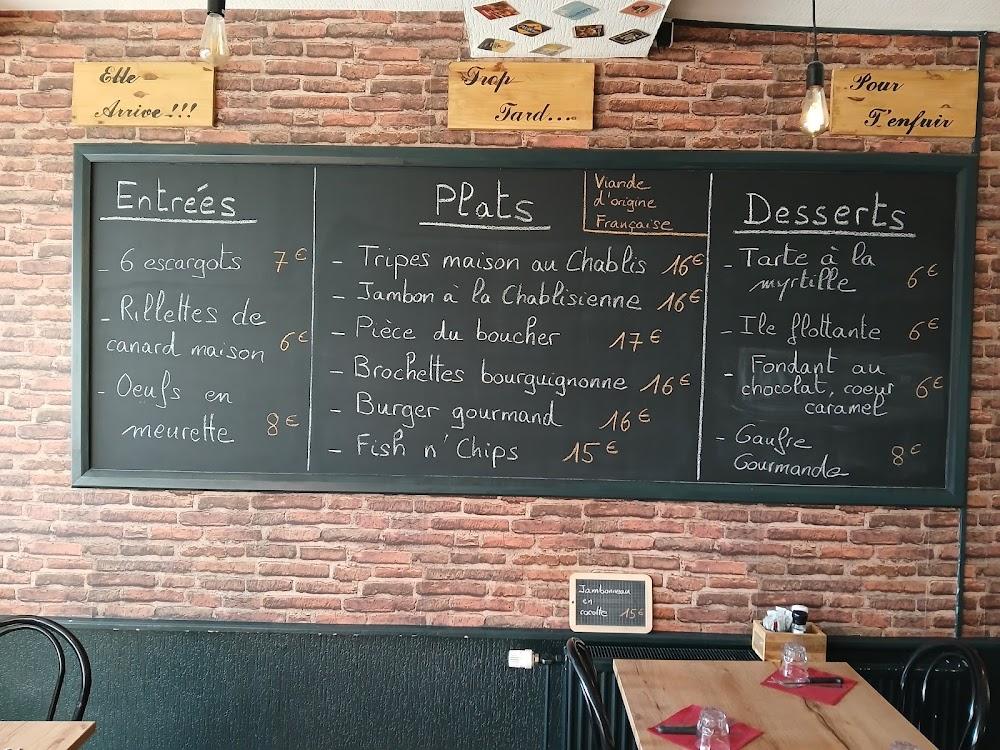 Elle
Arrive!!!
Trop
Tard...
Pour
T'enfuir
Entreés
- 6 escargots 7€
- Rillettes de
canard maison 6€
- Oeufs en
meurette 8€
Plats
Viande
d'origine
Française
- Tripes maison au Chablis 16€
- Jambon à la Chablisienne 16€
- Pièce du boucher 17€
- Brochettes bourguignonne 16€
- Burger gourmand 16€
- Fish n' Chips 15€
Desserts
- Tarte à la
myrtille 6€
- Ile flottante 6€
- Fondant au
chocolat, coeur 6€
caramel
- Gaufre
Gourmande 8€
Jambonneau
en
cocotte 15€